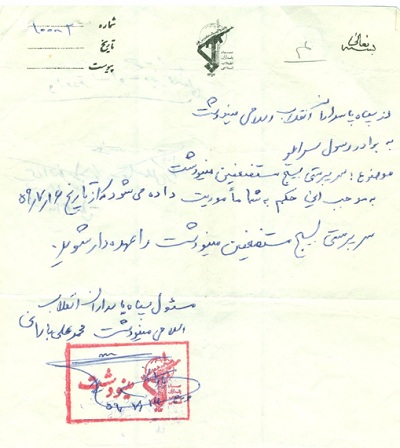 بسمه تعالی
شماره ۱۰۰۰۲
تاریخ
پیوست
از سپاه پاسداران انقلاب اسلامی مینودشت
به برادر رسول
موضوع: سرپرستی بسیج مستضعفین مینودشت
به موجب این حکم به شما مأموریت داده می‌شود که از تاریخ ۵۹/۷/۱۶
سرپرستی بسیج مستضعفین مینودشت را عهده‌دار شوید.
مسئول سپاه پاسداران انقلاب
اسلامی مینودشت محمدعلی
مینودشت